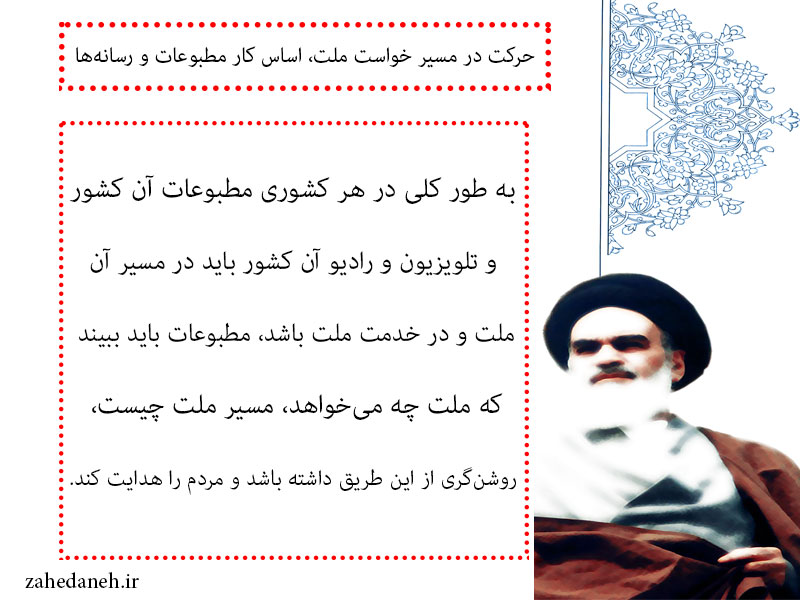 حرکت در مسیر خواست ملت، اساس کار مطبوعات و رسانه‌ها
به طور کلی در هر کشوری مطبوعات آن کشور
و تلویزیون و رادیو آن کشور باید در مسیر آن
ملت و در خدمت ملت باشد، مطبوعات باید ببیند
که ملت چه می‌خواهد، مسیر ملت چیست،
روشن‌گری از این طریق داشته باشد و مردم را هدایت کند.
zahedaneh.ir